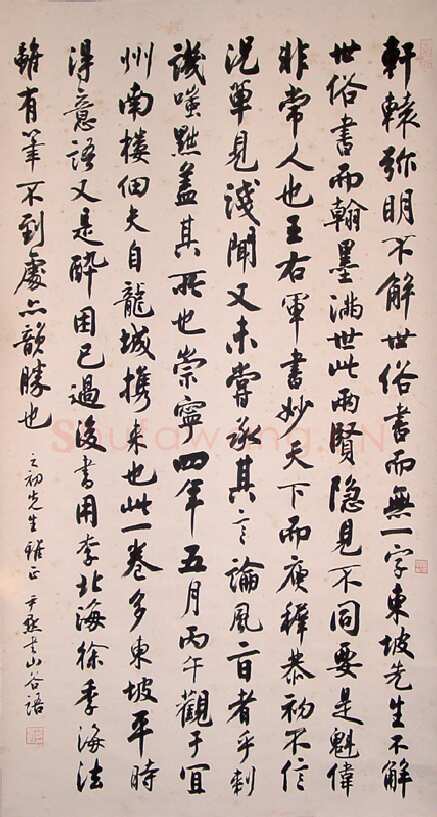 軒轅弥明不解世俗書而無一字東坡先生不解
世俗書而翰墨滿世此兩賢隐見不同要是魁偉
非常人也王右軍書妙天下而庾穉恭初不信
況單見淺聞又未嘗承其言論風旨者乎刺
譏嗤黠盖其所也崇寧四年五月丙午觀于宜
州南樓佃夫自龍城攜来也此一卷多東坡平時
得意語又是醉困已過後書用李北海徐季海法
雖有筆不到處亦韻勝也
之初先生雅正 尹默書山谷語
Shufawang.CN